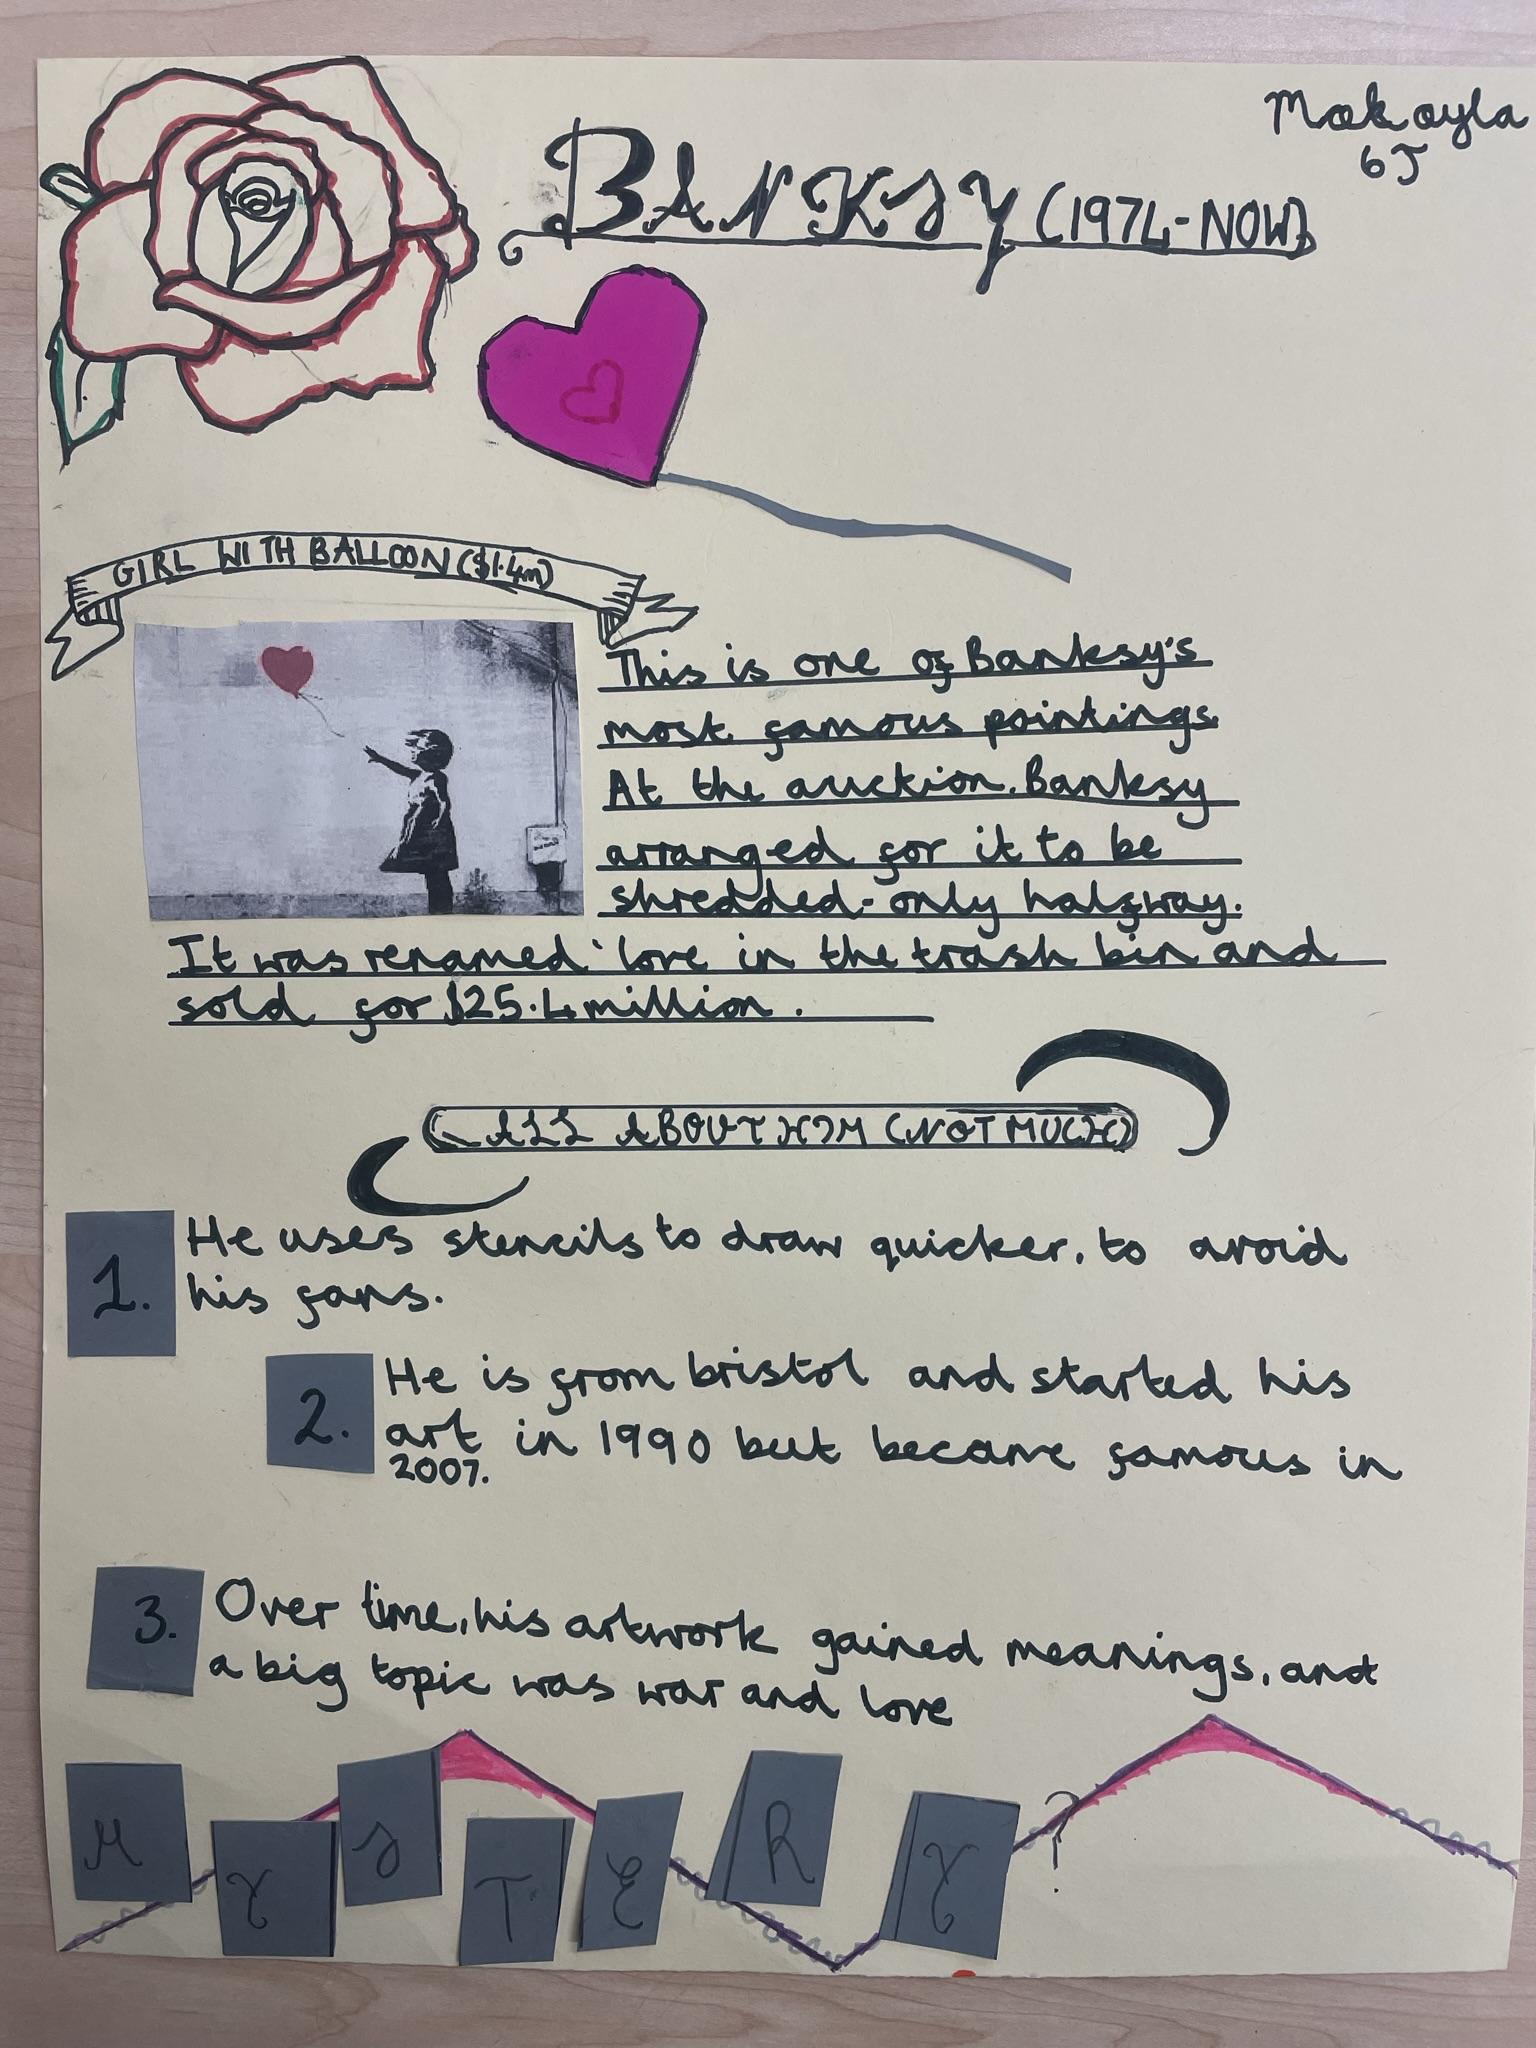 Makayla
6J
BANKSY (1974-NOW)
GIRL WITH BALLOON ($1.4m)
This is one of Banksy's
most famous paintings.
At the auction, Banksy
arranged for it to be
shredded - only halfway.
It was renamed 'love in the trash bin and
sold for $25.4 million.
ALL ABOUT HIM (NOT MUCH)
1. He uses stencils to draw quicker, to avoid
his fans.
2. He is from bristol and started his
art in 1990 but became famous in
2007.
3. Over time, his artwork gained meanings, and
a big topic was war and love
MYSTERY?